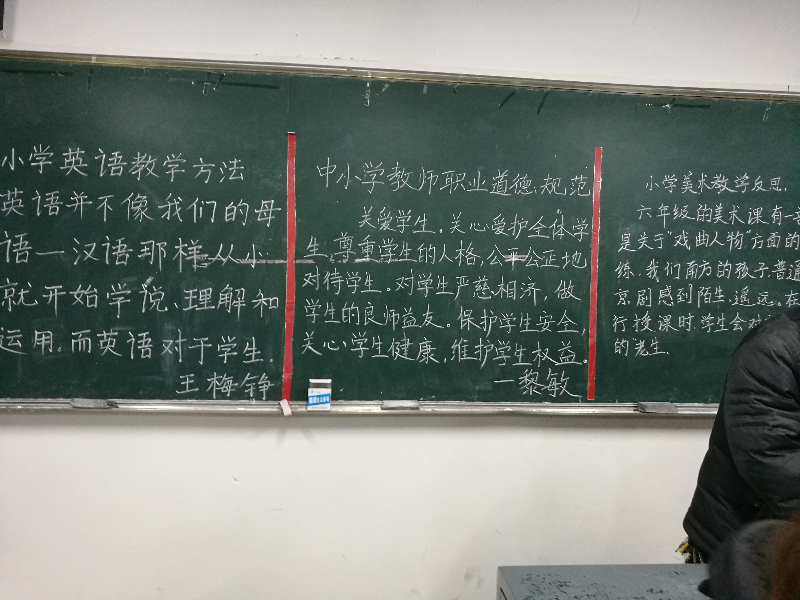 小学英语教学方法
英语并不像我们的母
语一汉语那样从小
就开始学说、理解和
运用.而英语对于学生.
王梅铮
中小学教师职业道德规范
关爱学生。关心爱护全体学
生,尊重学生的人格,公平公正地
对待学生。对学生严慈相济,做
学生的良师益友。保护学生安全,
关心学生健康,维护学生权益。
一黎敏
小学美术教学反思.
六年级的美术课有一
是关于“戏曲人物”方面的
练,我们南方的孩子普通
京剧感到陌生.遥远。在
行授课时.学生会对
的老生.